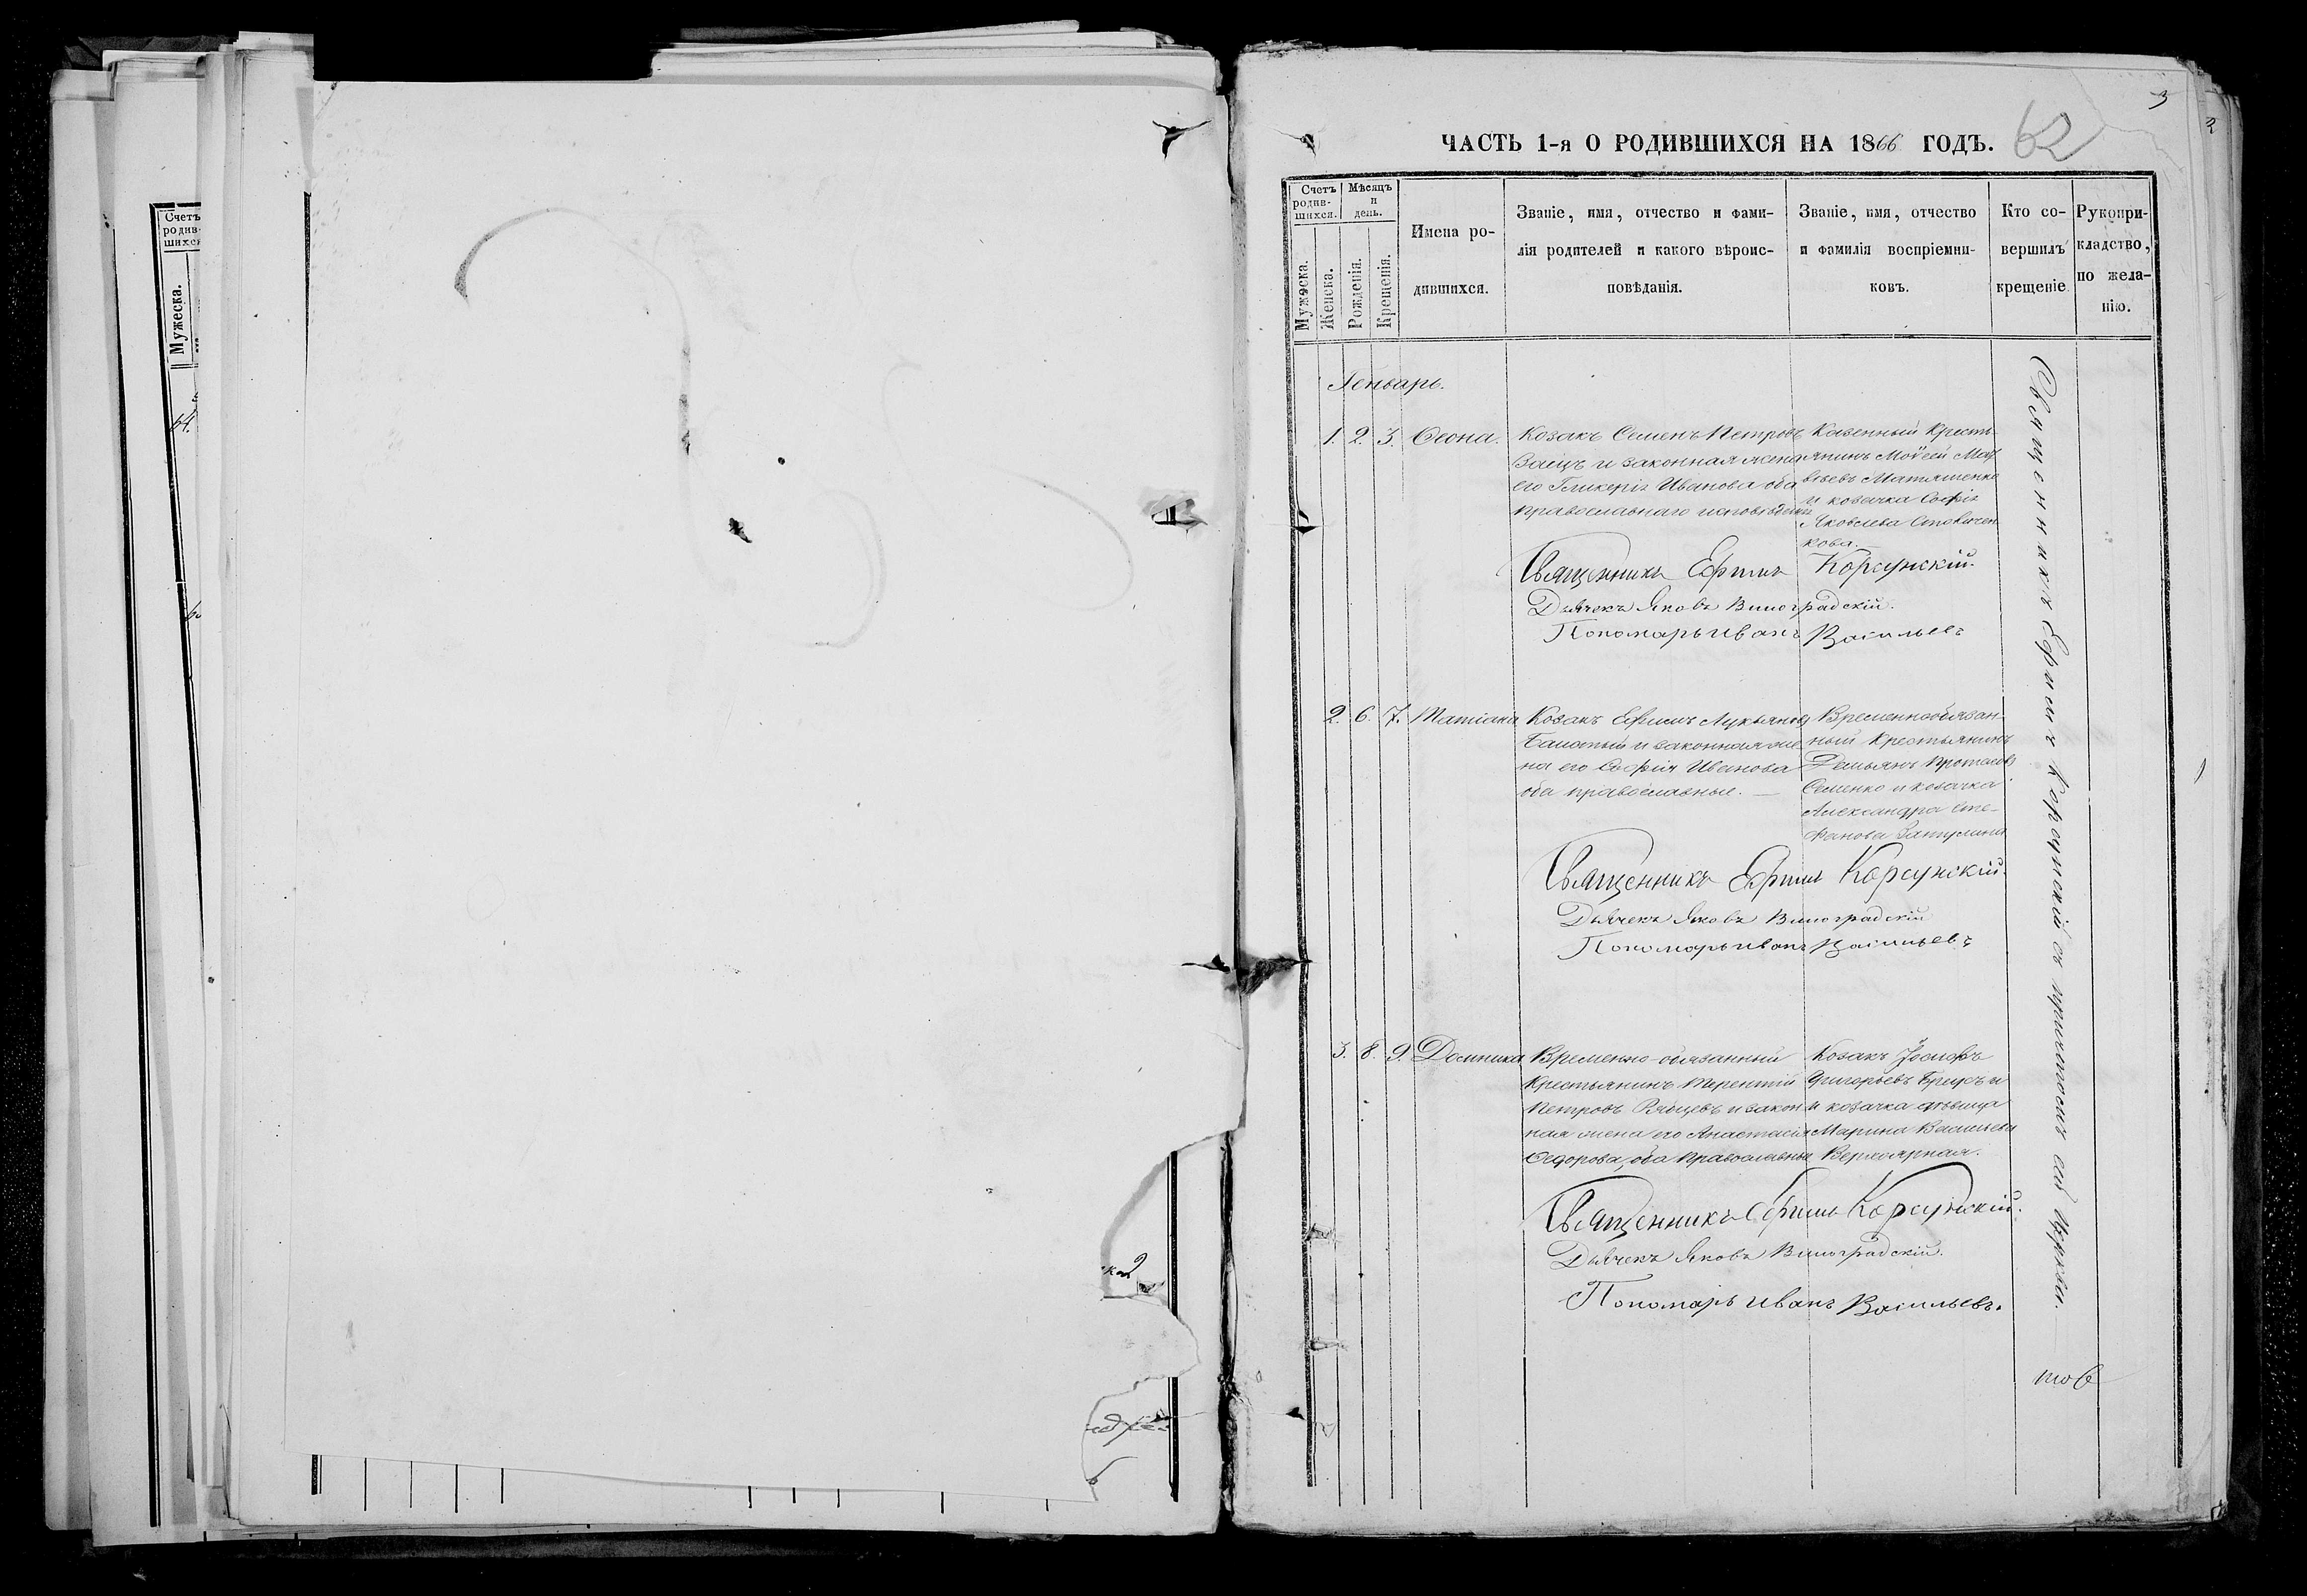 Счетъ
родив-
шихся
Мужеска.
64.
3
2
ЧАСТЬ 1-я О РОДИВШИХСЯ НА 1866 ГОДЪ.
62
Счетъ родив-шихся.
Мѣсяцъ и день.
Мужеска.
Женска.
Рожденія.
Крещенія.
Имена ро-
дившихся.
Званіе, имя, отчество и фами-
лія родителей и какого вѣроис-
повѣданія.
Званіе, имя, отчество
и фамилія воспріемни-
ковъ.
Кто со-
вершилъ
крещеніе.
Рукопри-
кладство,
по жела-
нію.
Генварь.
1. 2. 3. Ѳеона.
Козакъ Семенъ Петровъ
Заецъ и законная жена
его Гликерія Иванова оба
православнаго исповѣданія
Казенный Кресть-
янинъ Моѵсей Мат
вѣевъ Матяшенко
и козачка Софія
Яковлева
кова.
Священникъ Ефимъ Корсунскій.
Дьячекъ Яковъ Виноградскій.
Пономарь Иванъ Васильевъ
2. 6. 7. Татіана
Козакъ Ефимъ Лукьяновъ
и законная же
на его Софія Иванова
оба православные.
Временнообязан-
ный Крестьянинъ
Демьянъ Протасовъ
Семенко и козачка
Александра Сте-
фанова
Священникъ Ефимъ Корсунскій.
Дьячекъ Яковъ Виноградскій
Пономарь Иванъ Васильевъ
3. 8. 9. Домника
Временно-обязанный
Крестьянинъ Терентій
Петровъ и закон
ная жена его Анастасія
Ѳедорова, оба православные
Козакъ Іосифъ
Григорьевъ и
и козачка дѣвица
Марина Васильева
Священникъ Ефимъ Корсунскій.
Дьячекъ Яковъ Виноградскій.
Пономарь Иванъ Васильевъ.
Священникъ Ефимъ Корсунскій съ причтомъ сей Церкви.
тов